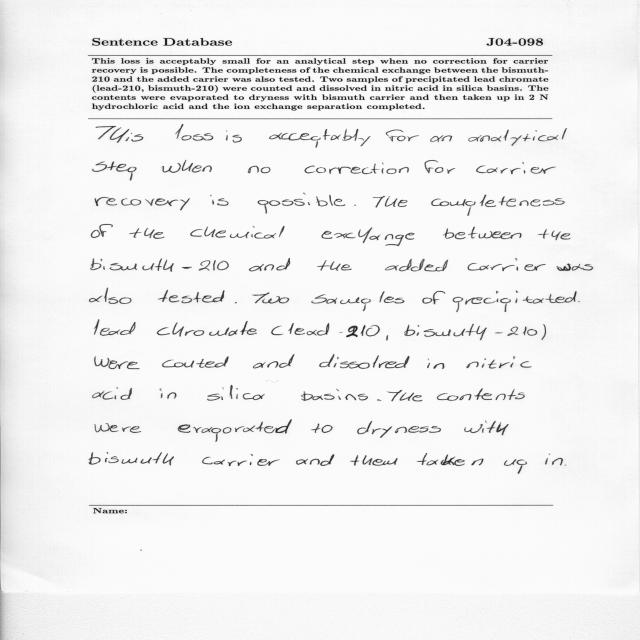 Sentence Database J04-098
This loss is acceptably small for an analytical step when no correction for carrier
recovery is possible. The completeness of the chemical exchange between the bismuth-
210 and the added carrier was also tested. Two samples of precipitated lead chromate
(lead-210, bismuth-210) were counted and dissolved in nitric acid in silica basins. The
contents were evaporated to dryness with bismuth carrier and then taken up in 2 N
hydrochloric acid and the ion exchange separation completed.
This loss is acceptably for an analytical
step when no correction for carrier
recovery is possible. The completeness
of the chemical exchange between the
bismuth-210 and the added carrier was
also tested. Two samples of precipitated
lead chromate (lead-210, bismuth-210)
were couted and dissolved in nitric
acid in silica basins. The contents
were evaporated to dryness with
bismuth carrier and them taken up in.
Name: